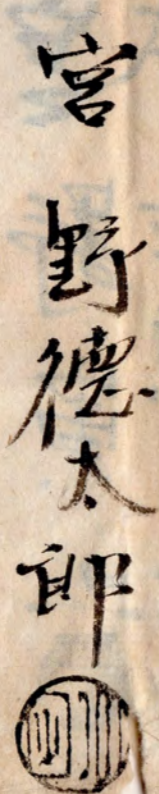 宮野德太郎